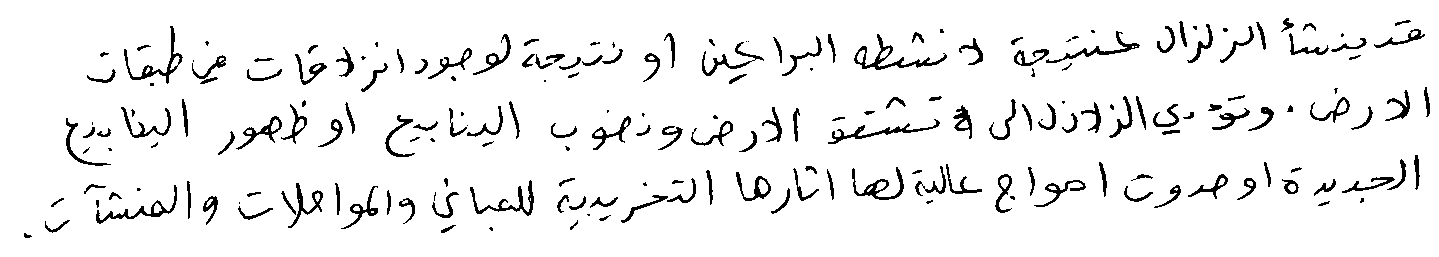 قد ينشأ الزلزال كنتيجة لانشطه البراكين او نتيجة لوجود انزلاقات في طبقات
الارض . وتؤدي الزلازل الى تشقق الارض ونضوب الينابيع او ظهور الينابيع
الجديدة او حدوث امواج عالية لها اثارها التخريبية للمباني والمواصلات والمنشآت .